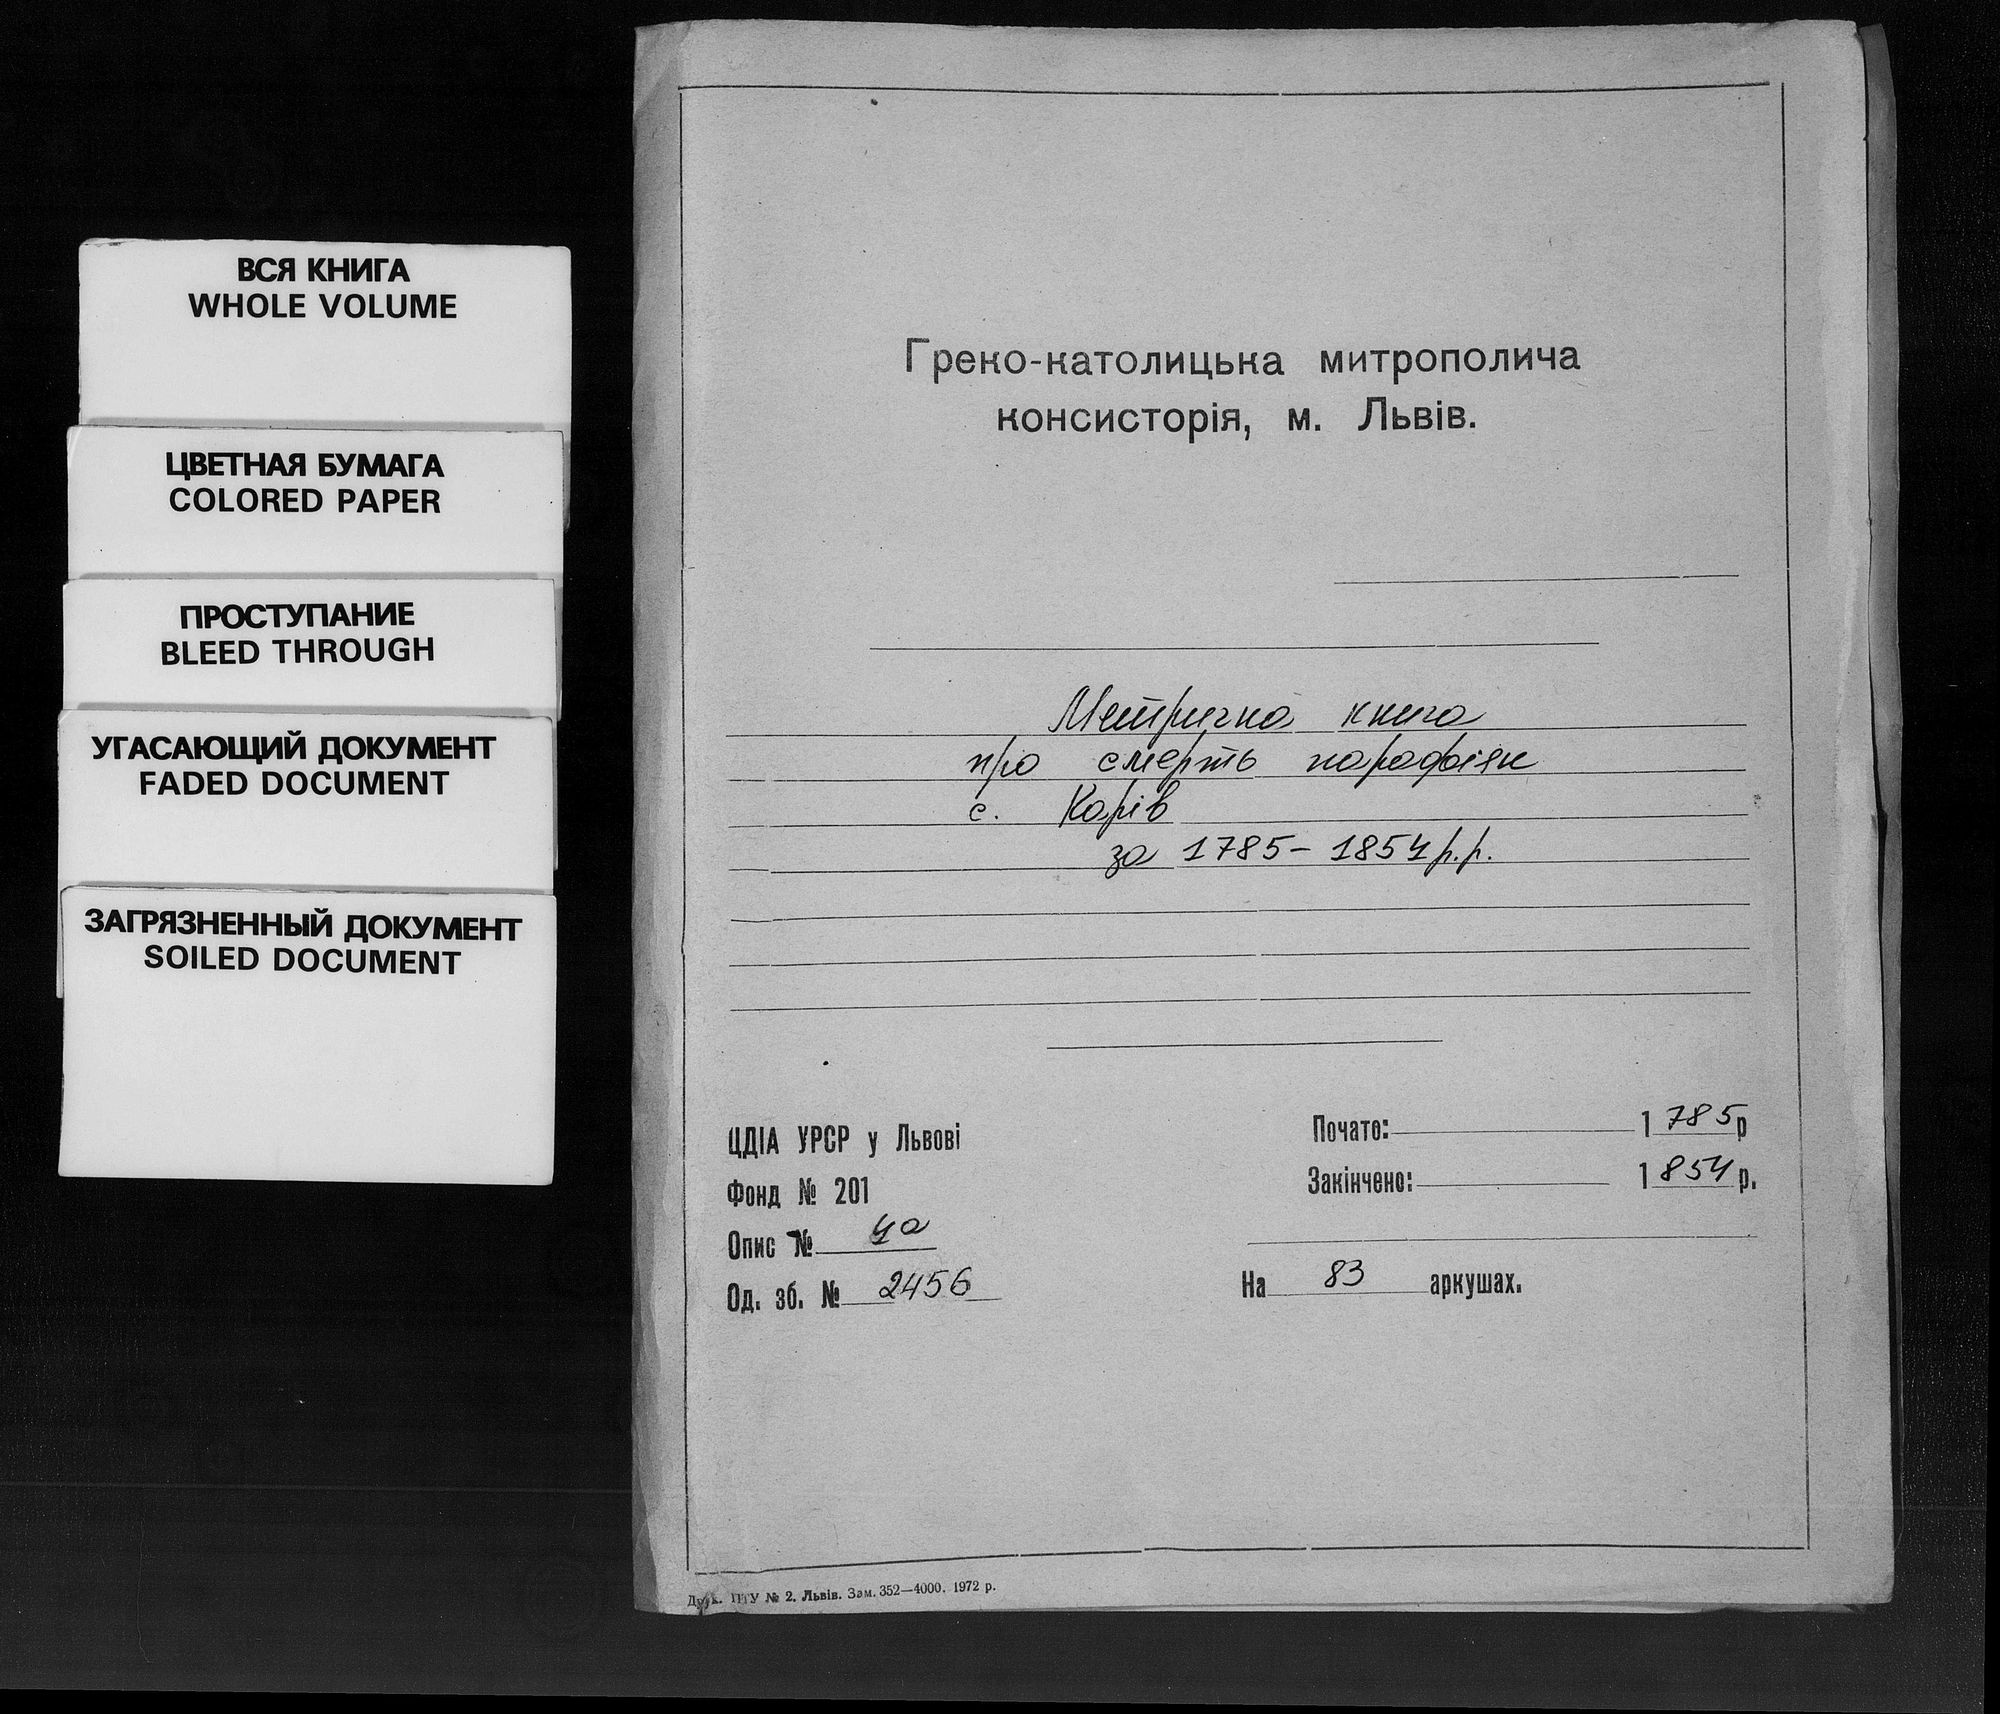 ВСЯ КНИГА
WHOLE VOLUME
ЦВЕТНАЯ БУМАГА
COLORED PAPER
ПРОСТУПАНИЕ
BLEED THROUGH
УГАСАЮЩИЙ ДОКУМЕНТ
FADED DOCUMENT
ЗАГРЯЗНЕННЫЙ ДОКУМЕНТ
SOILED DOCUMENT
Греко-католицька митрополича
консисторія, м. Львів.
Метрична книга
про смерть парафіян
с. Карів
за 1785-1854 р.р.
ЦДІА УРСР у Львові
Фонд № 201
Опис № 4а
Од. зб. № 2456
Почато: 1785р
Закінчено: 1854 р.
На 83 аркушах.
Друк. ПТУ № 2. Львів. Зам. 352—4000. 1972 р.